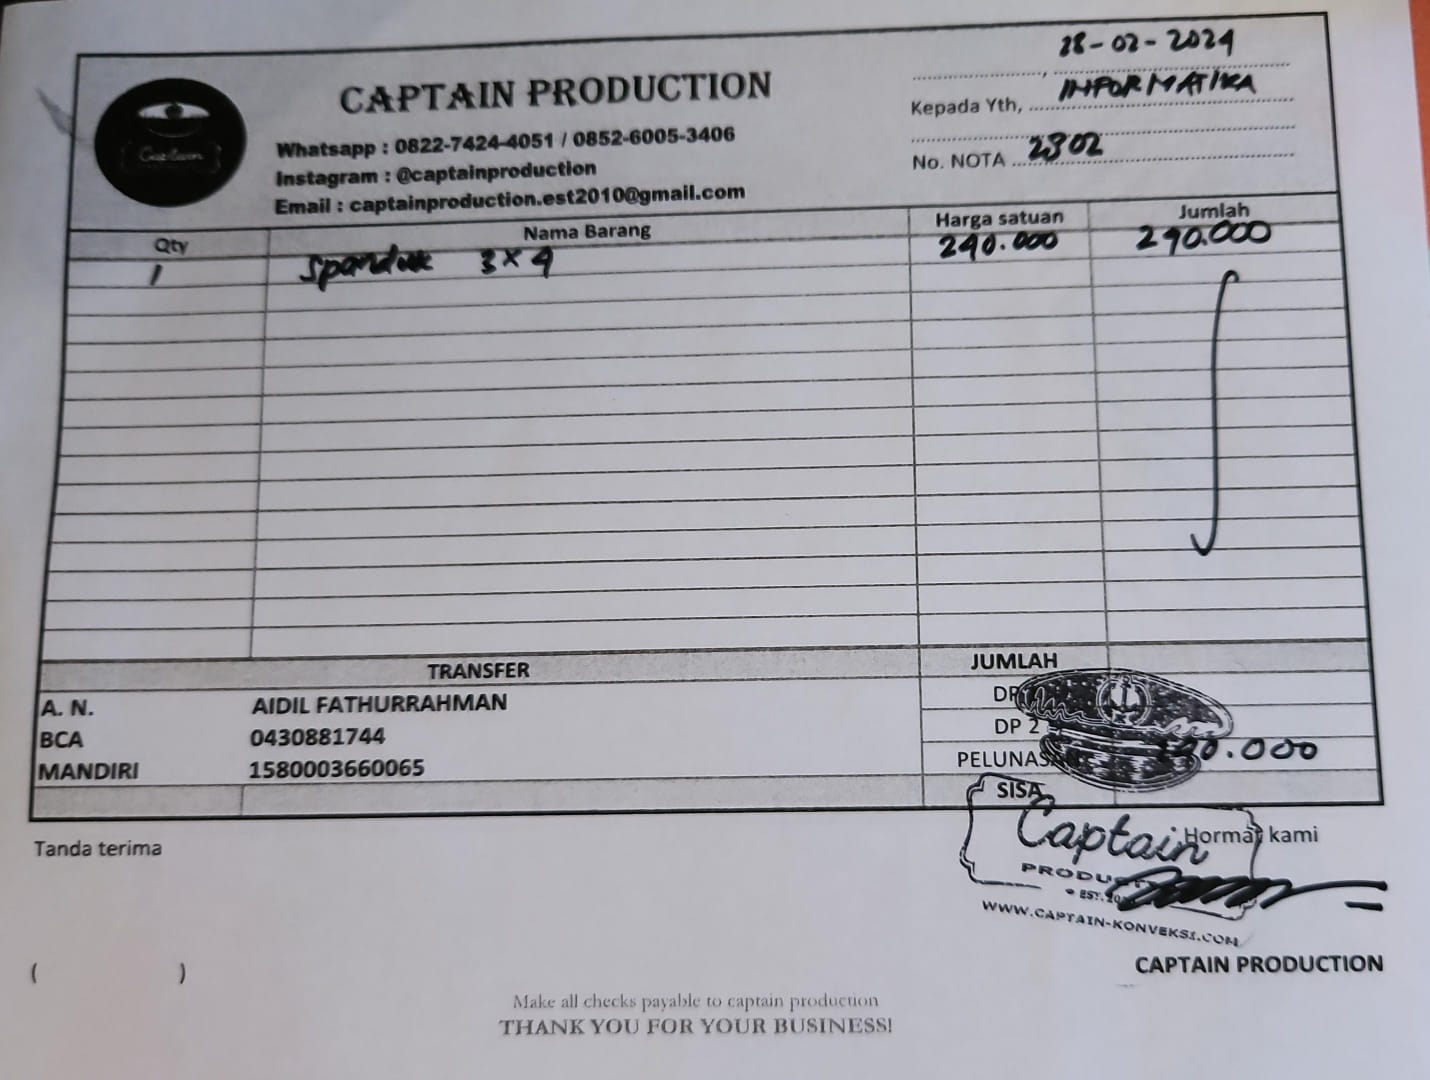 28-02-2024
CAPTAIN PRODUCTION
Whatsapp : 0822-7424-4051 / 0852-6005-3406
Instagram : @captainproduction
Email : captainproduction.est2010@gmail.com
Kepada Yth, INFORMATIKA
No. NOTA 2302
Captain
Qty Nama Barang Harga satuan Jumlah
1 Spanduk 3x4 240.000 240.000
TRANSFER JUMLAH
A. N. AIDIL FATHURRAHMAN
BCA 0430881744 DP 2
MANDIRI 1580003660065 PELUNASAN
SISA
Tanda terima Hormat kami
Captain
PRODUCTION
WWW.CAPTAIN-KONVEKSI.COM
( ) CAPTAIN PRODUCTION
Make all checks payable to captain production
THANK YOU FOR YOUR BUSINESS!